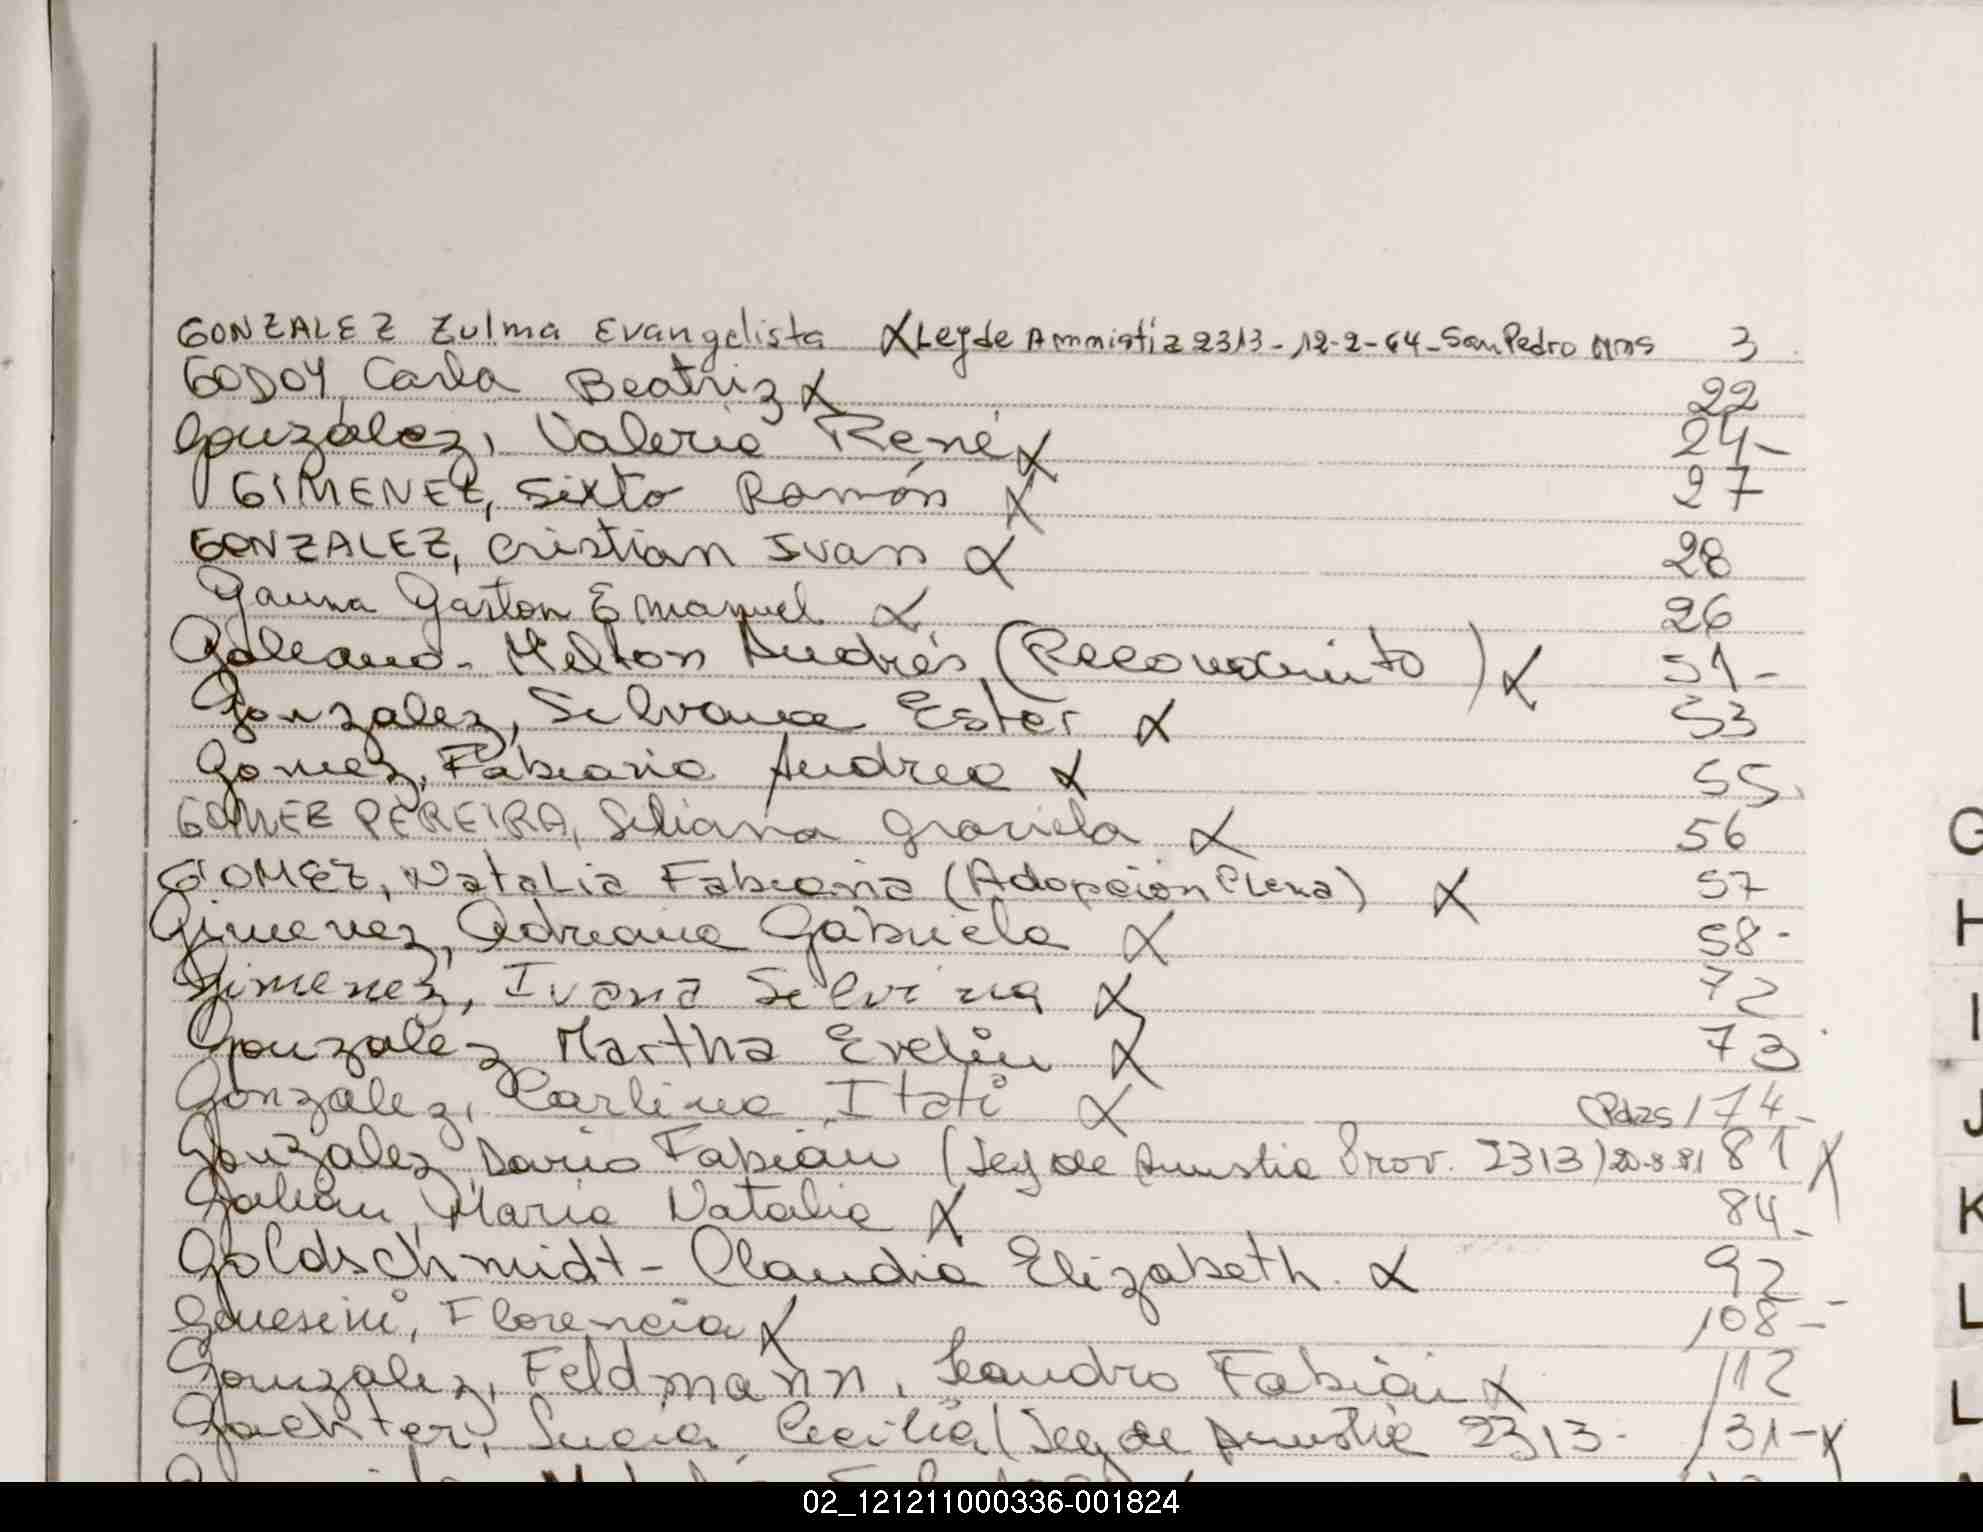 GONZALEZ Zulma Evangelista X Ley de Amnistía 2313 - 12-2-64 - San Pedro Mns 3
GODOY, Carla Beatriz X 22
Gonzalez, Valeria René X 24-
GIMENEZ, Sixto Ramón X 27
GONZALEZ, Cristian Ivan X 28
Gauna Gaston Emanuel X 26
Galeano - Milton Andrés (Reconocimiento) X 51-
Gonzalez, Silvana Ester X 53
Gomez, Fabiana Andrea X 55
GOMEZ PEREIRA, Siliana Graciela X 56
GOMEZ, Natalia Fabiana (Adopción Plena) X 57
Gimenez, Adriana Gabriela X 58-
Gimenez, Ivana Silvina X 72
Gonzalez Martha Evelin X 73
Gonzalez, Carlina Itatí X 74-
Gonzalez, Dario Fabián (Ley de Amnstia Prov. 2313) 81 X
Galián, Maria Natalia X 84-
Goldschmidt - Claudia Elizabeth. X 92
Florencia X 108-
Gonzalez, Feldmann, Leandro Fabián X 112
Gachter, Lucia Cecilia (Ley de Amnstia 2313- 131- X
G
H
I
J
K
L
L
02_121211000336-001824